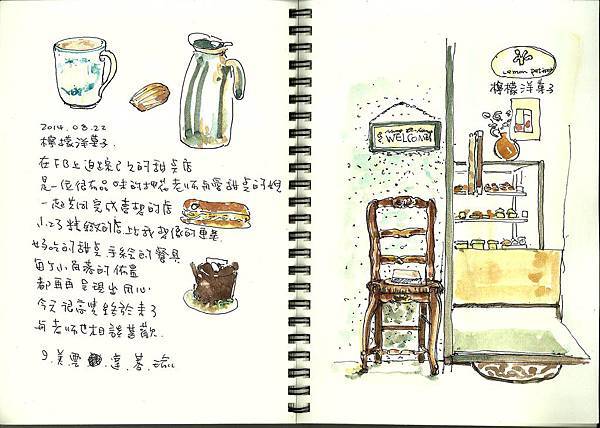 2014.08.22
檸檬洋菓子
在FB上追蹤已久的甜點店
是一位很有品味的拼花老師和愛甜點的她
一起共同完成喜想的店
小巧精緻的店比我想像的更美
好吃的甜點 手繪的餐具
每個小角落的佈置
都再再呈現出用心
今天很高興終於來了
與老師也相談甚歡
WELCOME
Lemon
檸檬洋菓子